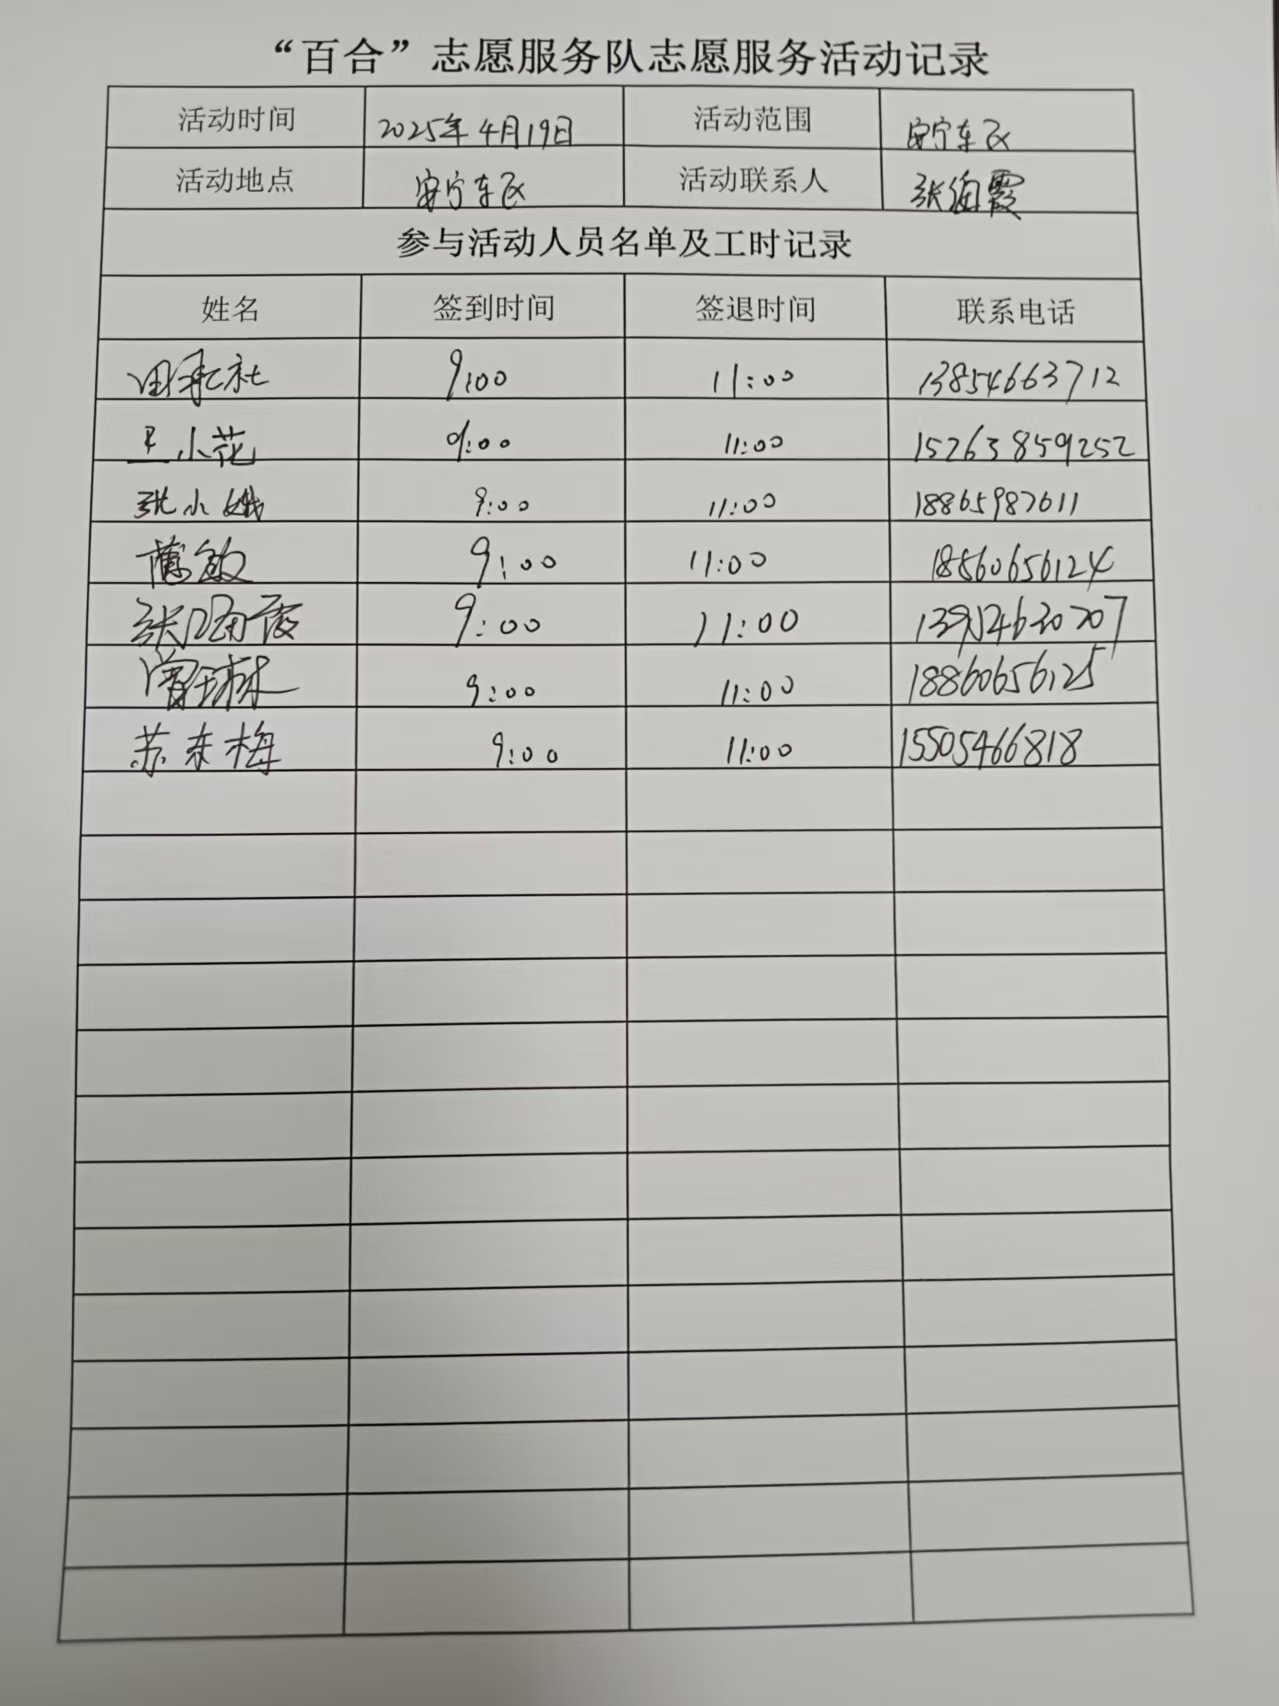 “百合”志愿服务队志愿服务活动记录
活动时间 2025年4月19日 活动范围 安宁东区
活动地点 安宁东区 活动联系人 张海霞
参与活动人员名单及工时记录
姓名 签到时间 签退时间 联系电话
9:00 11:00 13854663712
王小花 9:00 11:00 15263859252
张小娥 9:00 11:00 18865987611
敏 9:00 11:00 18560656124
张海霞 9:00 11:00
9:00 11:00 18860656125
苏东梅 9:00 11:00 15505466818